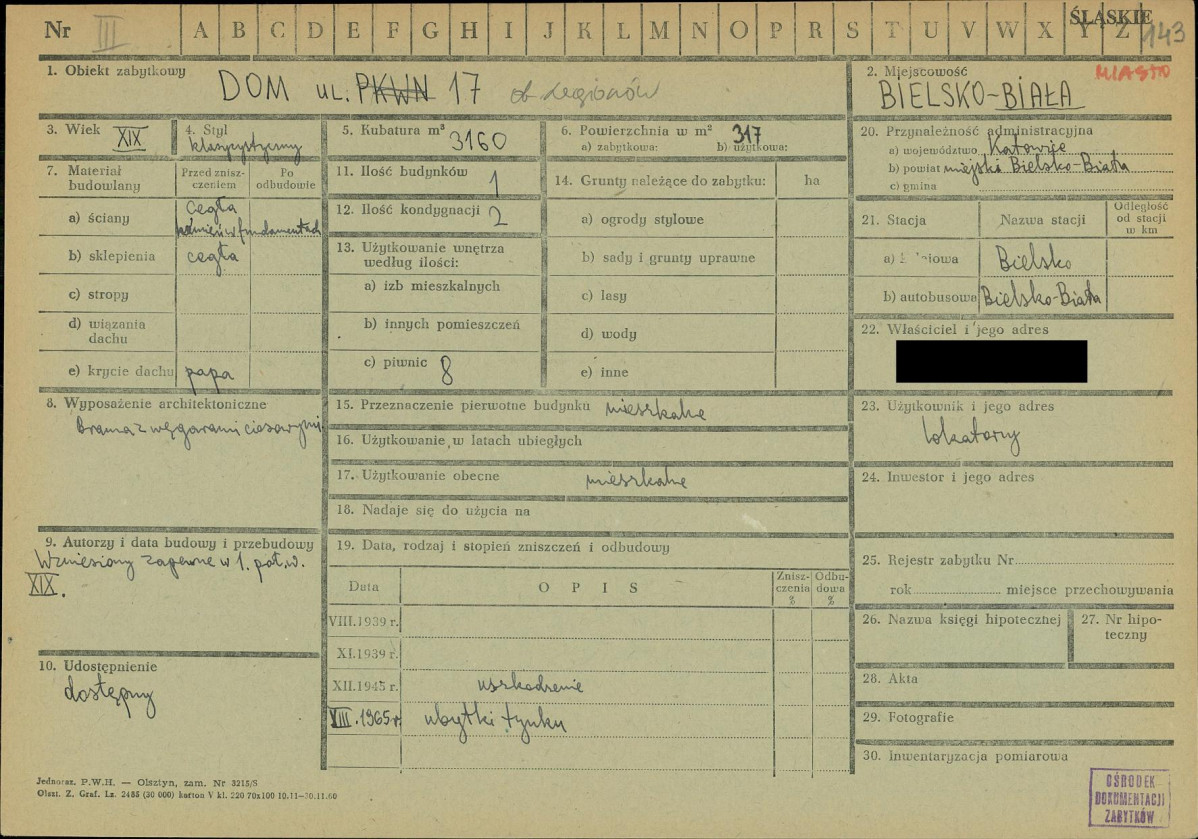 Nr III A B C D E F G H I J K L M N O P R S T U V W X Y Z
ŚLĄSKIE
143
1. Obiekt zabytkowy
DOM UL. PKWN 17 ob Legionów
2. Miejscowość
MIASTO
BIELSKO-BIAŁA
3. Wiek
XIX
4. Styl
klasycystyczny
5. Kubatura m³
3160
6. Powierzchnia w m² 317
a) zabytkowa: b) użytkowa:
7. Materiał budowlany
Przed znisz-
czeniem
Po
odbudowie
a) ściany
cegła
kamień w fundamentach
b) sklepienia cegła
c) stropy
d) wiązania
dachu
e) krycie dachu papa
8. Wyposażenie architektoniczne
Brama z węgarami ciosowymi
9. Autorzy i data budowy i przebudowy
Wzniesiony zapewne w 1. poł. w.
XIX.
10. Udostępnienie
dostępny
11. Ilość budynków 1
12. Ilość kondygnacji 2
13. Użytkowanie wnętrza
według ilości:
a) izb mieszkalnych
b) innych pomieszczeń
c) piwnic 8
14. Grunty należące do zabytku: ha
a) ogrody stylowe
b) sady i grunty uprawne
c) lasy
d) wody
e) inne
15. Przeznaczenie pierwotne budynku mieszkalne
16. Użytkowanie w latach ubiegłych
17. Użytkowanie obecne mieszkalne
18. Nadaje się do użycia na
19. Data, rodzaj i stopień zniszczeń i odbudowy
Data
OPIS
Znisz-
czenia
%
Odbu-
dowa
%
VIII.1939 r.
XI.1939 r.
XII.1945 r. uszkodzenie
VIII.1965 r. ubytki tynku
20. Przynależność administracyjna
a) województwo Katowice
b) powiat miejski Bielsko-Biała
c) gmina
21. Stacja
Nazwa stacji
Odległość
od stacji
w km
a) Bielsko
b) autobusowa Bielsko-Biała
22. Właściciel i jego adres
23. Użytkownik i jego adres
lokatorzy
24. Inwestor i jego adres
25. Rejestr zabytku Nr
rok miejsce przechowywania
26. Nazwa księgi hipotecznej
27. Nr hipo-
teczny
28. Akta
29. Fotografie
30. Inwentaryzacja pomiarowa
Jednoraz. P.W.H. — Olsztyn, zam. Nr 3215/S
Olszt. Z. Graf. Lz. 2485 (30 000) karton V kl. 220 70x100 10.11-30.11.60
OŚRODEK
DOKUMENTACJI
ZABYTKÓW